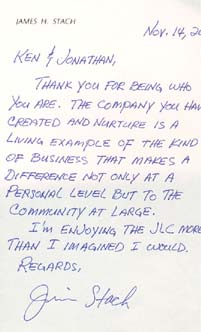 JAMES H. STACH
Nov. 14, 20
KEN & JONATHAN,
THANK YOU FOR BEING WHO
YOU ARE. THE COMPANY YOU HAV
CREATED AND NURTURE IS A
LIVING EXAMPLE OF THE KIND
OF BUSINESS THAT MAKES A
DIFFERENCE NOT ONLY AT A
PERSONAL LEVEL BUT TO THE
COMMUNITY AT LARGE.
I'M ENJOYING THE JLC MORE
THAN I IMAGINED I WOULD.
REGARDS,
Jim Stach